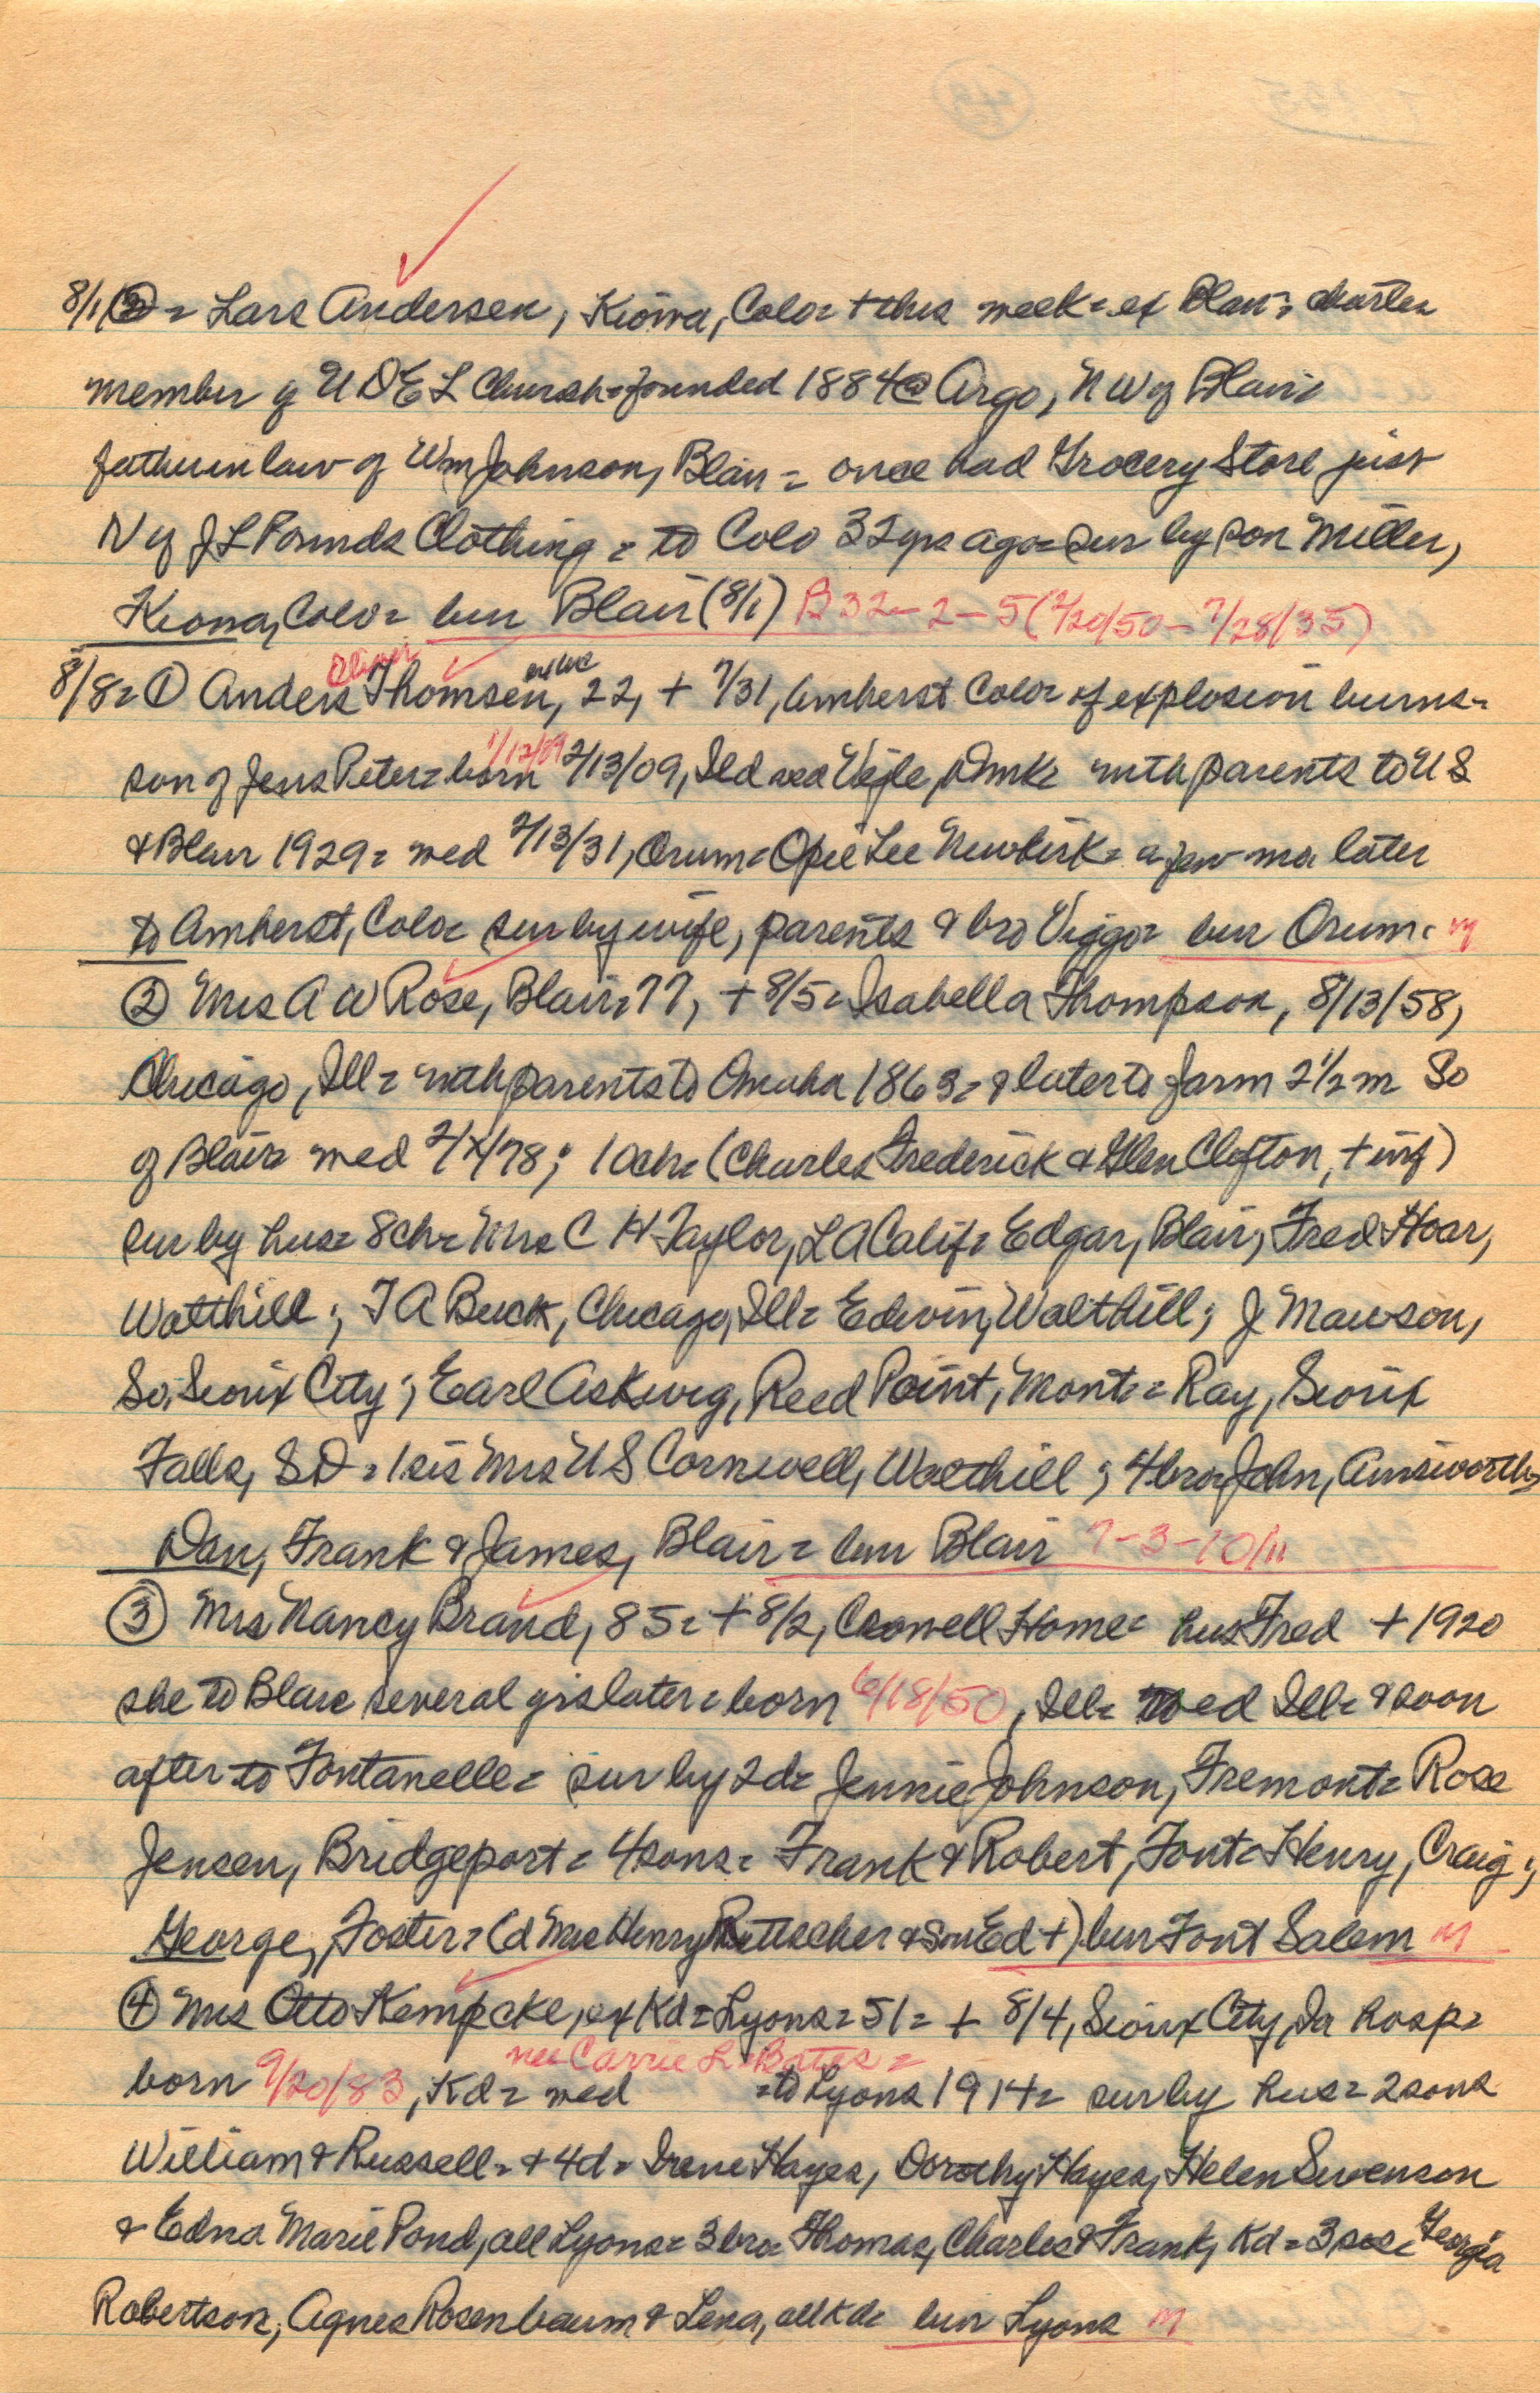 8/1 (3) = Lars Andersen, Kiowa, Colo = + this week = ex Blair; charter
member of U D E L Church = founded 1884 @ Argo, N W of Blair =
fatherinlaw of Wm Johnson, Blair = once had Grocery Store just
N of J L Pounds Clothing = to Colo 32 yrs ago = sur by son Miller,
Kiowa, Colo = bur Blair (8/1) B 32-2-5 (2/20/50 - 7/28/35)
Oliver
8/8 = (1) Anders Thomsen, 22, + 7/31, Amherst Colo = of explosion burns =
1/12/09
son of Jens Peter = born 2/13/09, Ild ved Vejle, Dmk = with parents to U S
& Blair 1929 = med 2/13/31, Orum = Opie Lee Newkirk = a few mo later
to Amherst, Colo = sur by wife, parents & bro Viggo = bur Orum = M
(2) Mrs A W Rose, Blair, 77, + 8/5 = Isabella Thompson, 8/13/58,
Chicago, Ill = with parents to Omaha 1863 = & later to farm 2 1/2 m So
of Blair = med 2/X/78; 10 ch = (Charles Frederick & Glen Clifton, + inf)
sur by hus = 8 ch = Mrs C H Taylor, L A Calif = Edgar, Blair; Fred Hoar,
Walthill; T A Buck, Chicago, Ill = Edwin, Walthill; J Mawson,
So. Sioux City; Earl Askwig, Reed Point, Mont = Ray, Sioux
Falls, S D = 1 sis Mrs U S Cornwell, Walthill; 4 bro = John, Ainsworth,
Dan, Frank & James, Blair = bur Blair 7-3-10/11
(3) Mrs Nancy Brand, 85 = + 8/2, Crowell Home = hus Fred + 1920
she to Blair several yrs later = born 6/18/50, Ill = med Ill = & soon
after to Fontanelle = sur by 2 d = Jennie Johnson, Fremont = Rose
Jensen, Bridgeport = 4 sons = Frank & Robert, Font = Henry, Craig;
George, Foster = (d Mrs Henry Rettscher & Son Ed +) bur Font Salem M
(4) Mrs Otto Kempcke, ex Kd = Lyons = 51 = + 8/4, Sioux City, Ia hosp =
nee Carrie L Bates =
born 9/20/83, Kd = med = to Lyons 1914 = sur by hus = 2 sons
William & Russell = + 4 d = Irene Hayes, Dorothy Hayes, Helen Swenson
& Edna Marie Pond, all Lyons = 3 bro = Thomas, Charles & Frank, Kd = 3 sis = Georgia
Robertson, Agnes Rosenbaum & Lena, all Kd = bur Lyons M